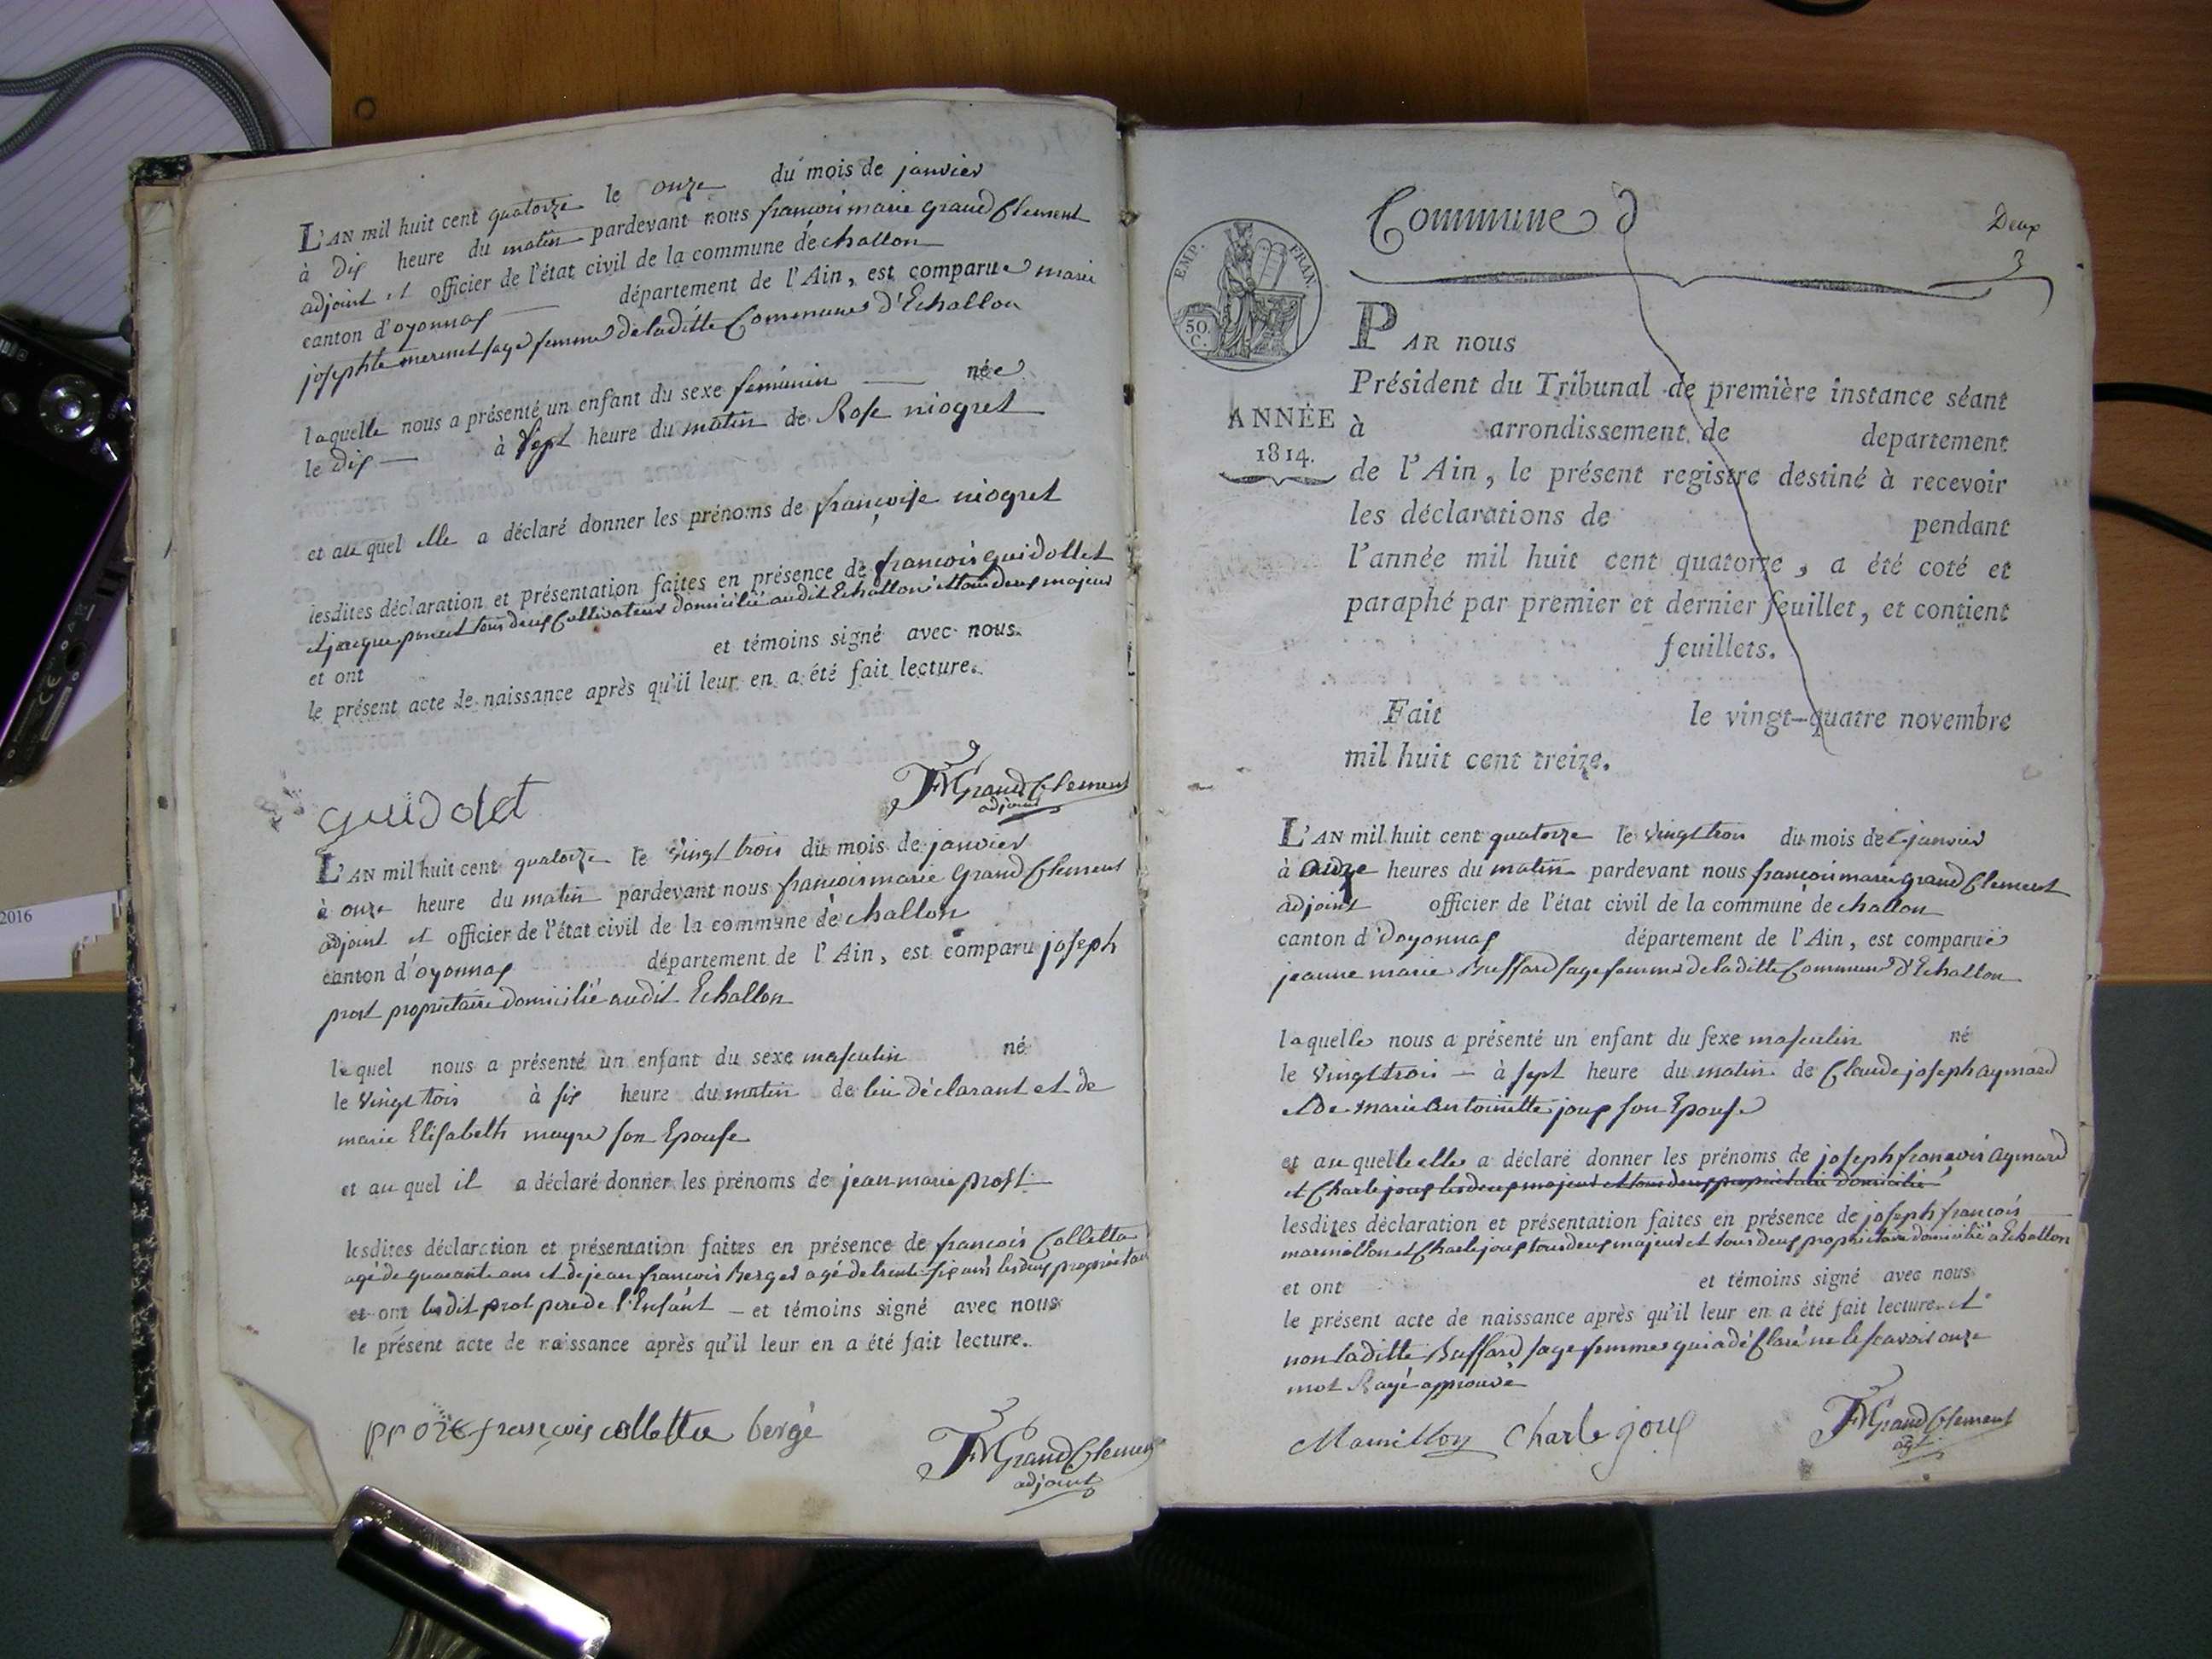 L'AN mil huit cent quatorze le onze du mois de janvier
à dix heure du matin pardevant nous francois marie grand Clement
adjoint et officier de l'état civil de la commune dechallon
canton d'oyonnax département de l'Ain, est comparue marie
josephte mermet sage femme de laditte Commune d'Echallon
laquelle nous a présenté un enfant du sexe feminin née
le dix à sept heure du matin de Rose niogret
et au quel elle a déclaré donner les prénoms de françoise niogret
lesdites déclaration et présentation faites en présence de francois guidollet
et jacque poncet tous deux Cultivateurs domicilié audit Echallon et tous deux majeur
et ont et témoins signé avec nous
le présent acte de naissance après qu'il leur en a été fait lecture.
guidolet
FMGrandClement
adjoint
L'AN mil huit cent quatorze le vingt trois du mois de janvier
à onze heure du matin pardevant nous francois marie Grand Clement
adjoint et officier de l'état civil de la commune dechallon
canton d'oyonnax département de l'Ain, est comparu joseph
prost proprietaire domicilié audit Echallon
lequel nous a présenté un enfant du sexe masculin né
le vingt tois à six heure du matin de lui déclarant et de
marie Elisabeth mayre son Epouse
et au quel il a déclaré donner les prénoms de jean marie prost
lesdites déclaration et présentation faites en présence de francois Colletta
agé de quarante ans et de jean francois Berger agé de trente six ans les deux proprietair
et ont ledit prot pere de l'Enfant et témoins signé avec nous
le présent acte de naissance après qu'il leur en a été fait lecture.
prote françois colletta bergé
FMGrandClement
adjoint
Commune d
Deux
3
EMP. FRAN
50.
C.
ANNÉE
1814.
PAR nous
Président du Tribunal de première instance séant
à arrondissement de departement
de l'Ain, le présent registre destiné à recevoir
les déclarations de pendant
l'année mil huit cent quatorze, a été coté et
paraphé par premier et dernier feuillet, et contient
feuillets.
Fait le vingt-quatre novembre
mil huit cent treize.
L'AN mil huit cent quatorze le vingt trois du mois de janvier
à onze heures du matin pardevant nous francois marie grand Clement
adjoint officier de l'état civil de la commune dechallon
canton d'Doyonnax département de l'Ain, est comparue
jeanne marie Buffard sage femme de laditte Commune d'Echallon
laquelle nous a présenté un enfant du sexe masculin né
le vingt trois à sept heure du matin de Claude joseph aymard
et de marie antoinette joux son Epouse
et au quel elle a déclaré donner les prénoms de joseph francois aymard
et Charle joux les deux majeur et tous deux proprietaire domicilié
lesdites déclaration et présentation faites en présence de joseph francois
marmillon et Charle joux tous deux majeur et tous deux proprietaire domicilié a Echallon
et ont et témoins signé avec nous
le présent acte de naissance après qu'il leur en a été fait lecture. et
non laditte Buffard sage femme qui a déClaré ne le scavoir onze
mot Rayé approuvé
Mamillon Charle joux
FMGrandClement
adjt
2016